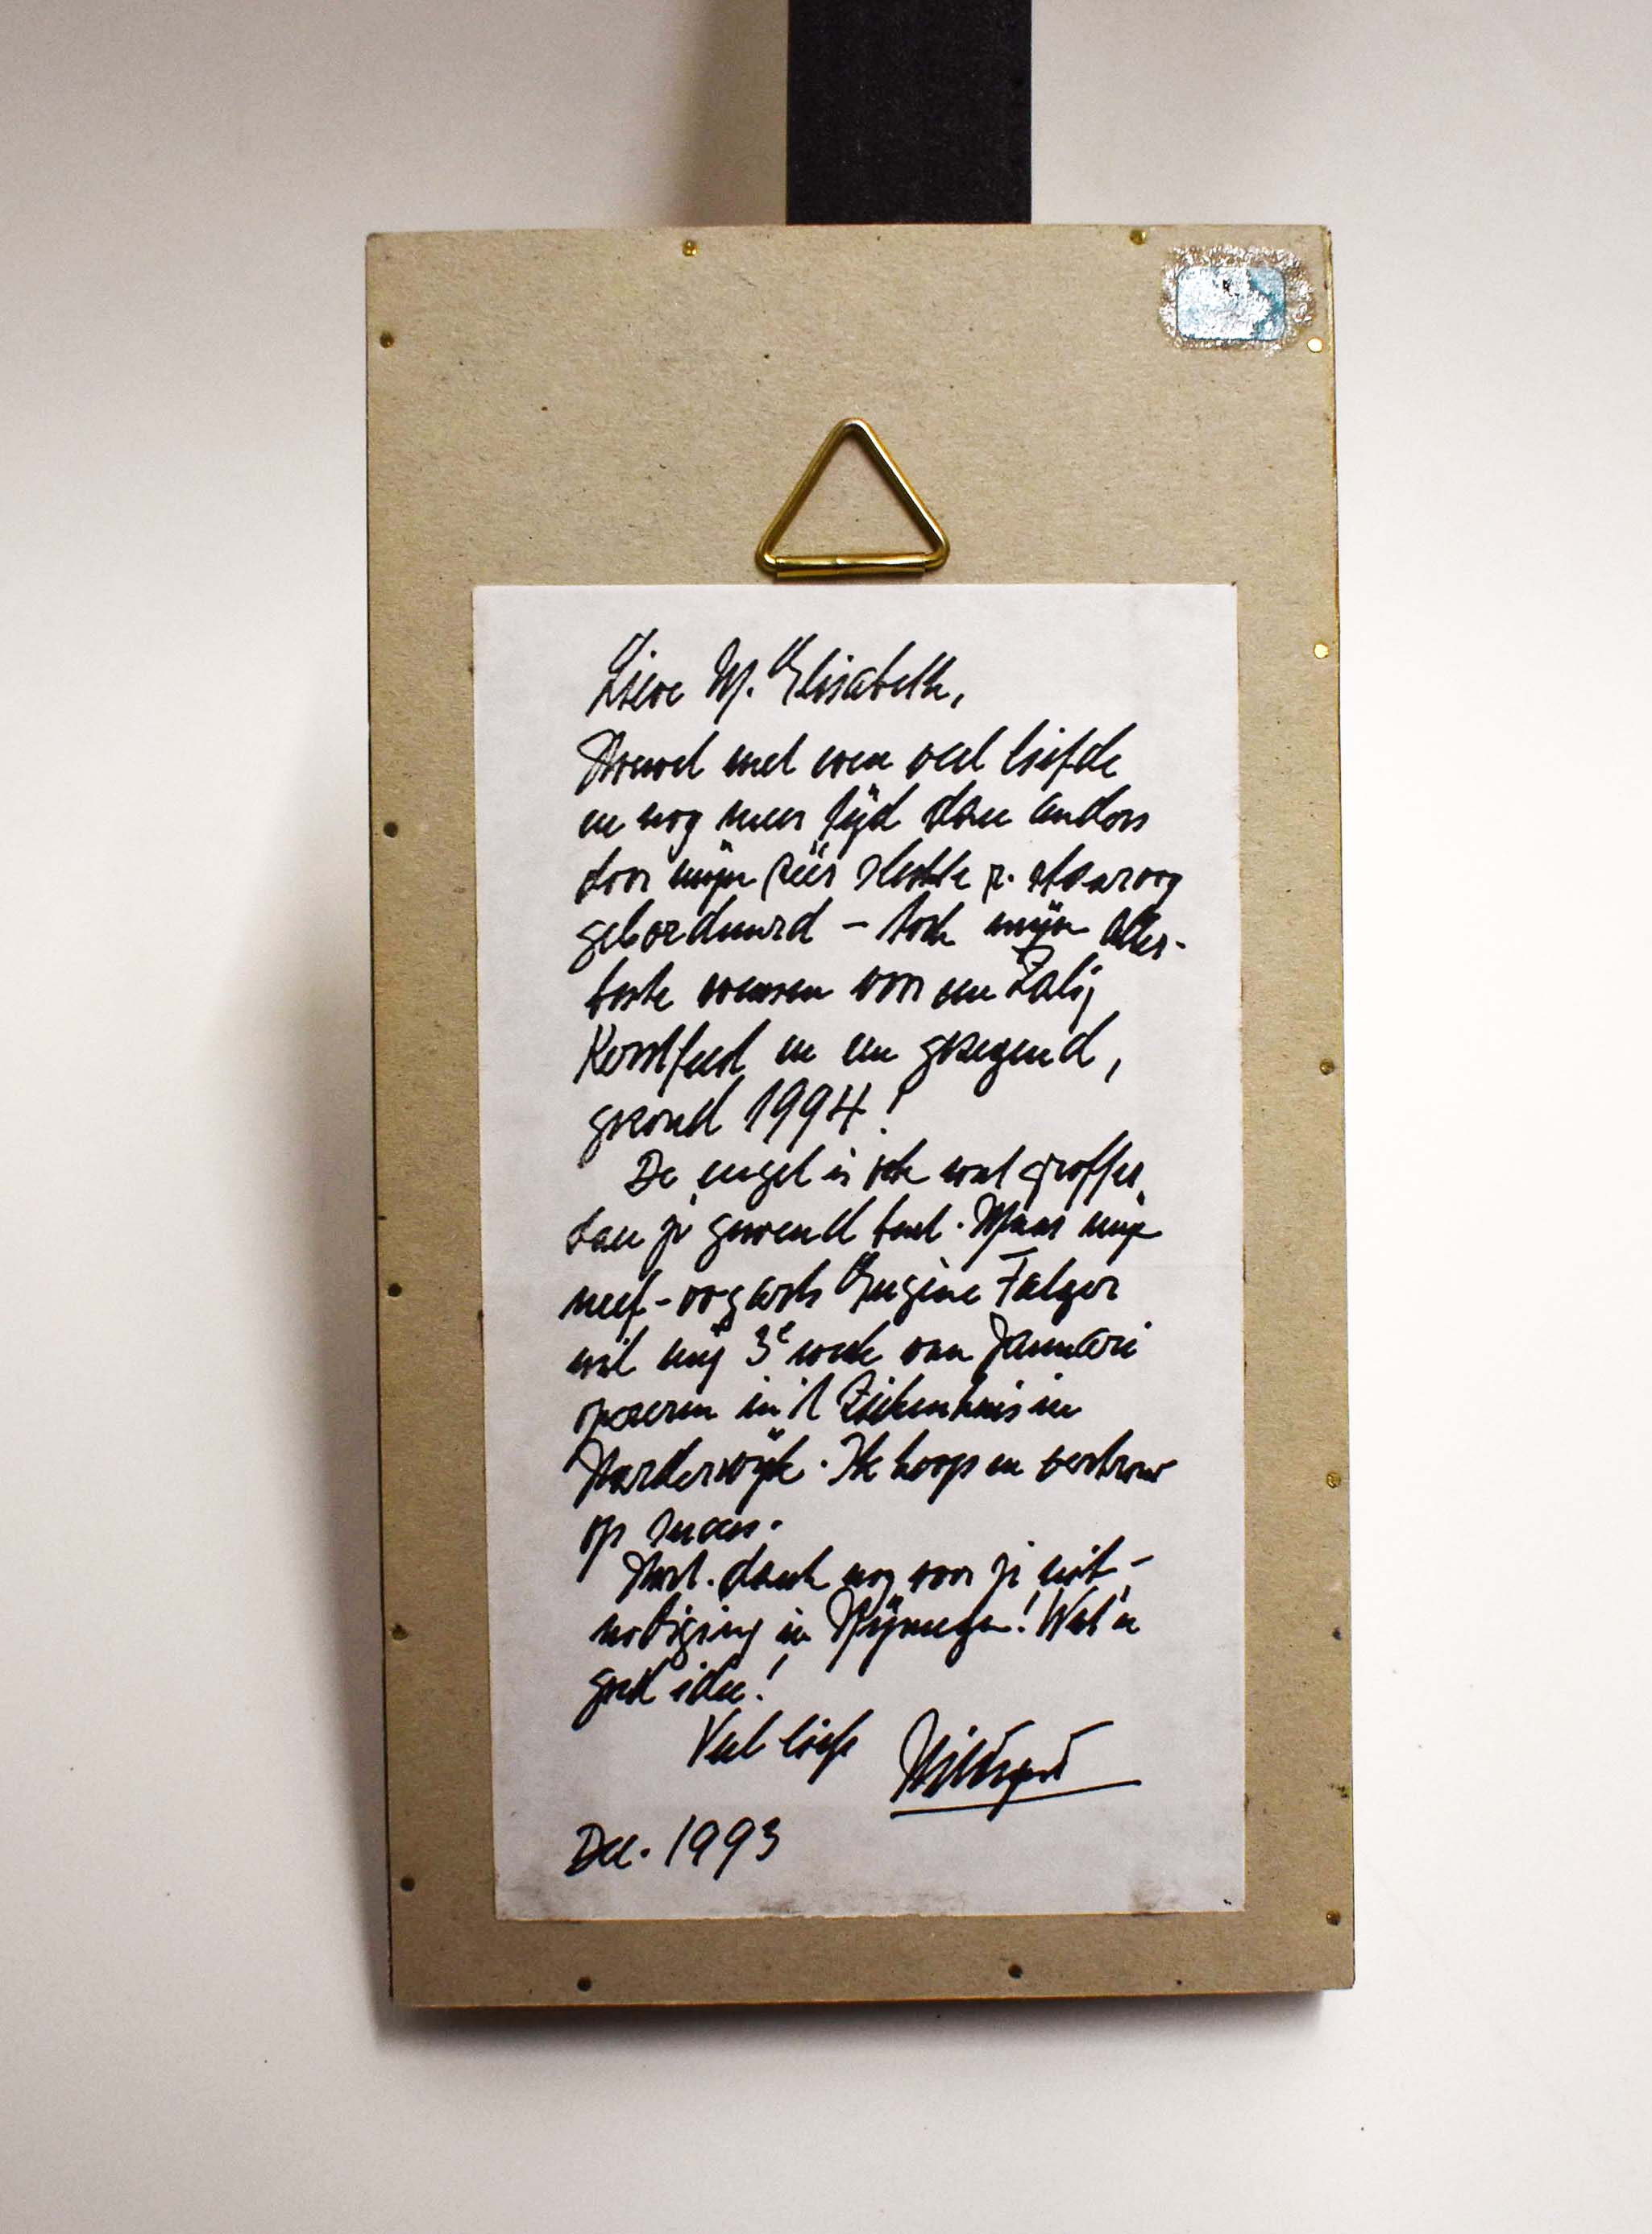 Lieve M. Elisabeth,
Hoewel met even veel liefde
en nog meer tijd dan anders
door mijn zéér slechte r. staaroog
geborduurd – toch mijn aller-
beste wensen voor een Zalig
Kerstfeest en een gezegend,
gezond 1994!
De engel is iets wat groffer
dan je gewend bent. Maar mijn
neef-oogarts Eugène Falger
wil mij 3e week van Januari
opereren in 't Ziekenhuis in
Harderwijk. Ik hoop en vertrouw
op succes.
Hart. dank nog voor je uit-
nodiging in Nijmegen! Wat 'n
goed idee!
Veel liefs
Dec. 1993